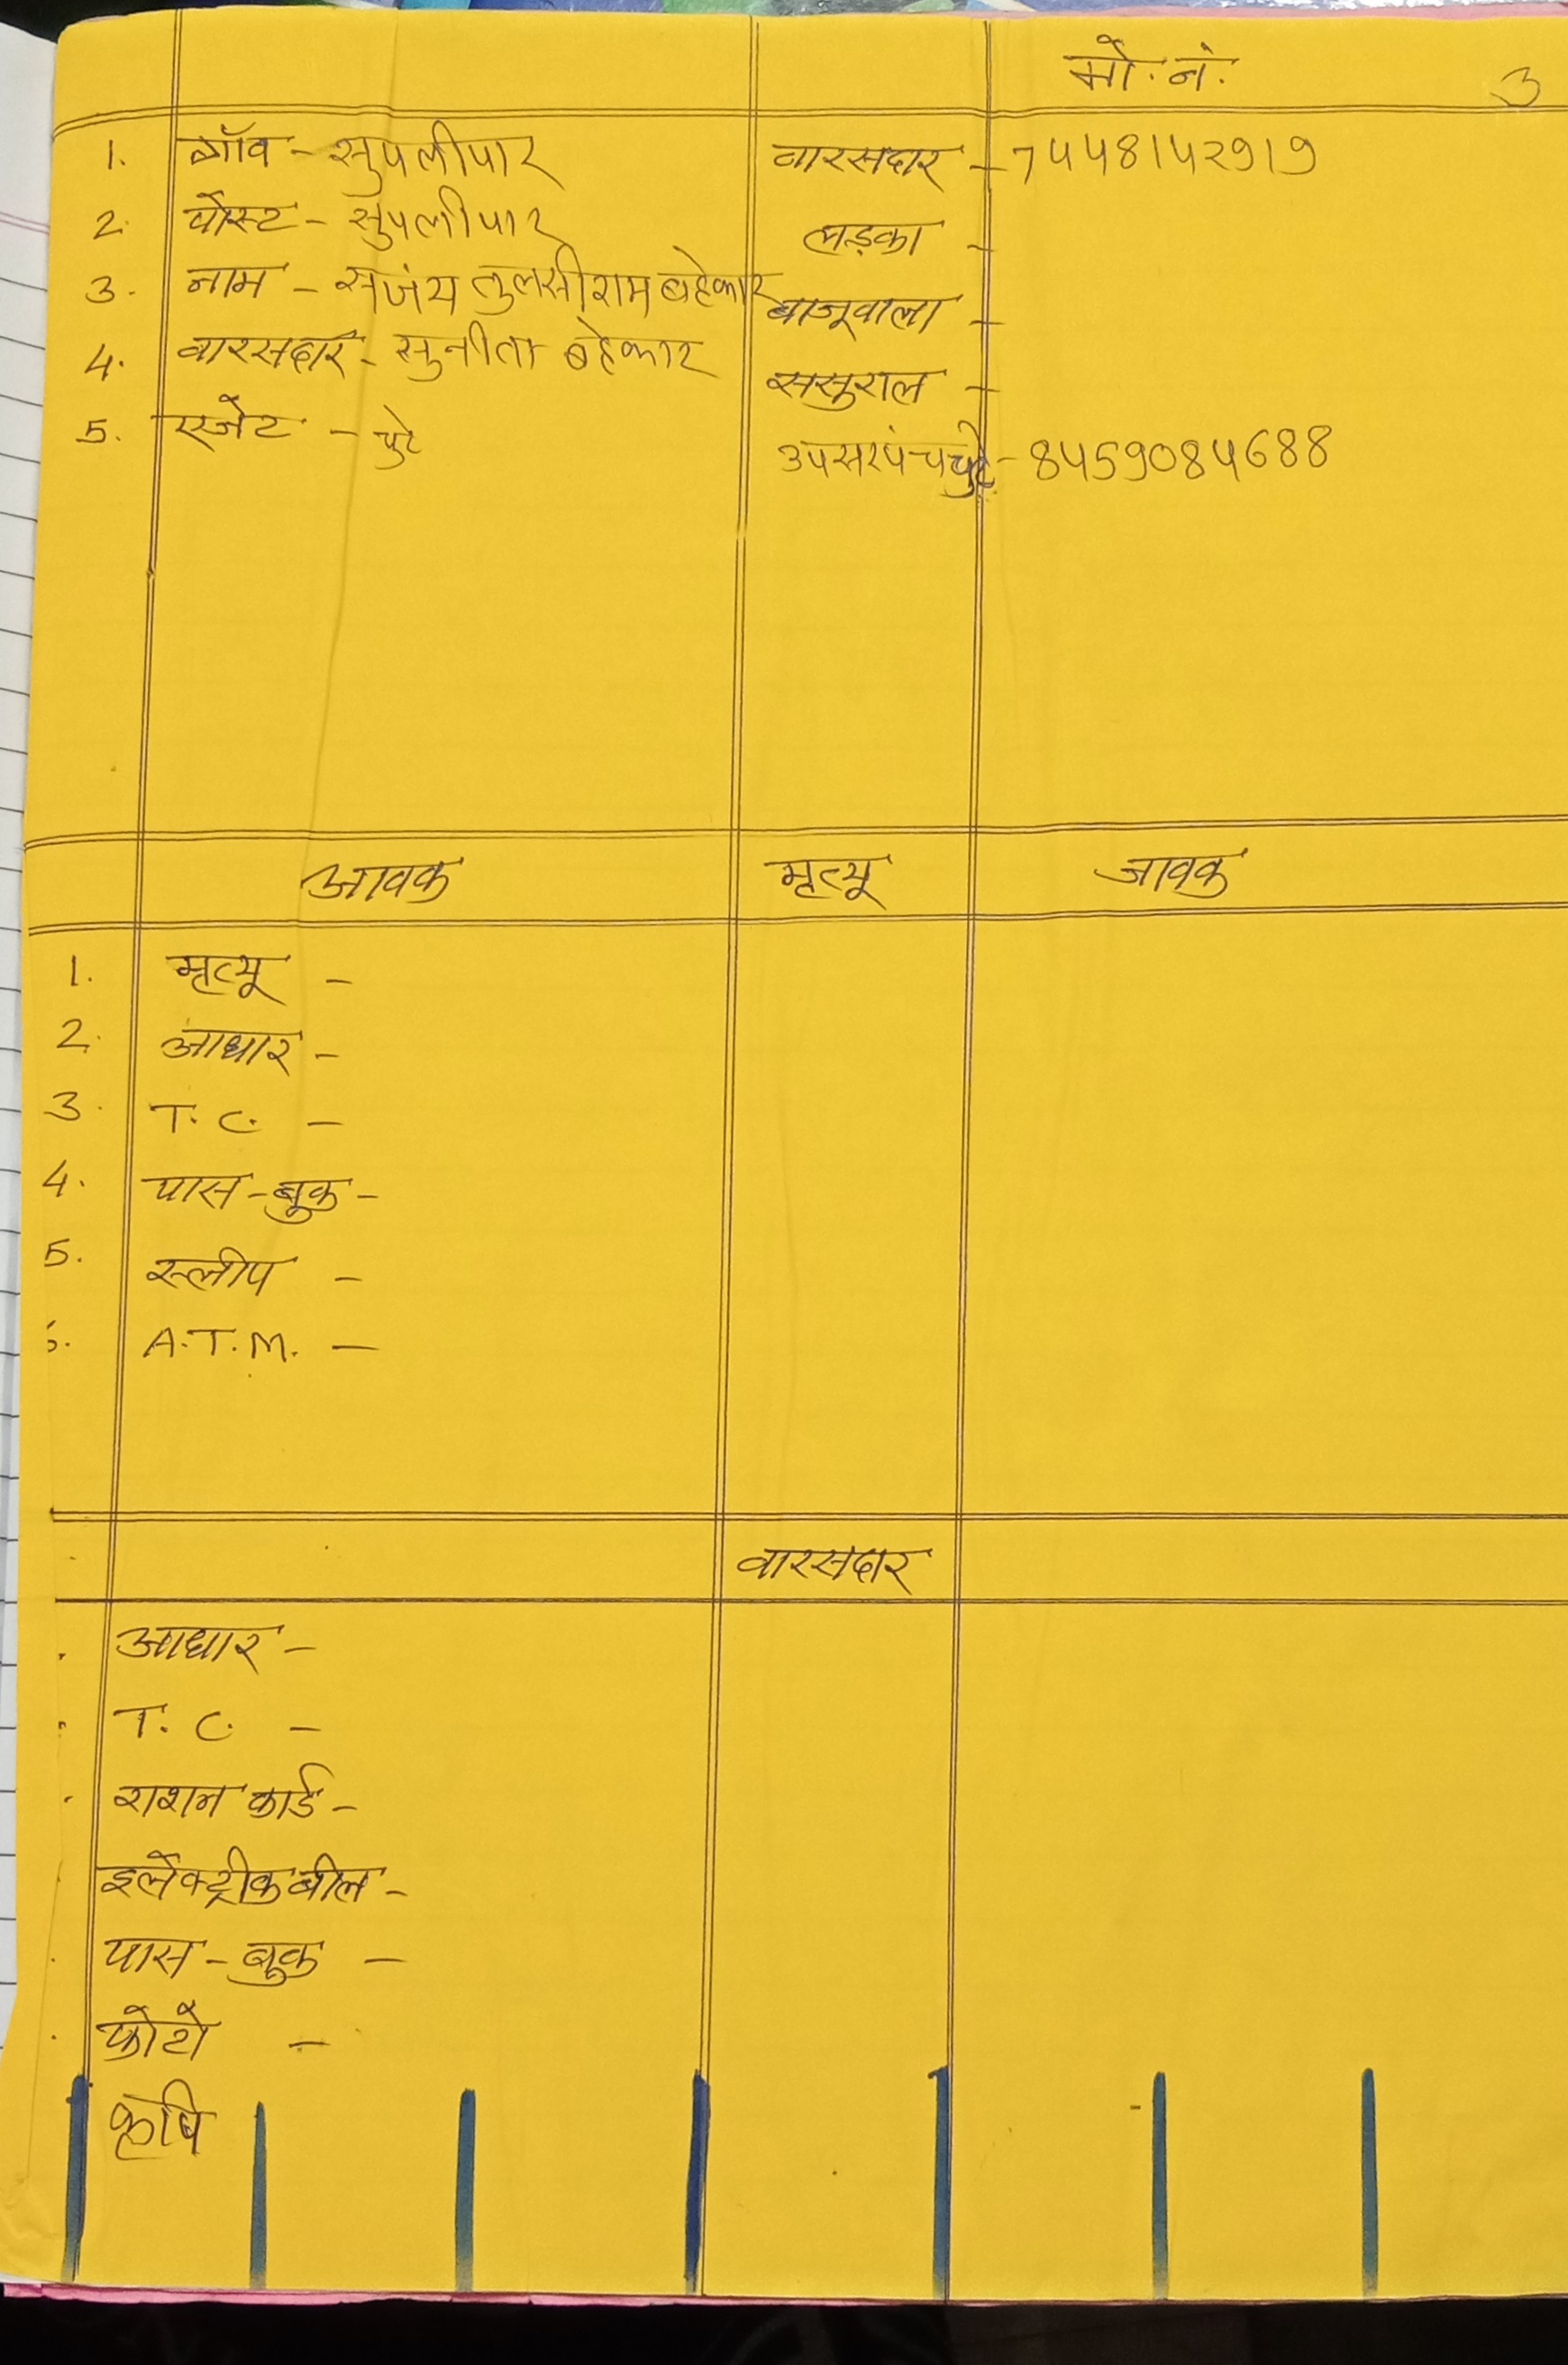 मो. नं. 3
1. गॉव - सुपलीपार वारसदार - 7448142919
2. पोस्ट - सुपलीपार लड़का -
3. नाम - संजय तुलसीराम बहेकार बाजूवाला -
4. वारसदार - सुनीता बहेकार ससुराल -
5. एजेंट - चुटे उपसरपंच चुटे - 8459084688
आवक मृत्यू जावक
1. मृत्यू -
2. आधार -
3. T. C. -
4. पास - बुक -
5. स्लीप -
A.T.M. -
वारसदार
आधार -
T. C. -
राशन कार्ड -
इलेक्ट्रीक बील -
पास - बुक -
फोटो -
कृषि